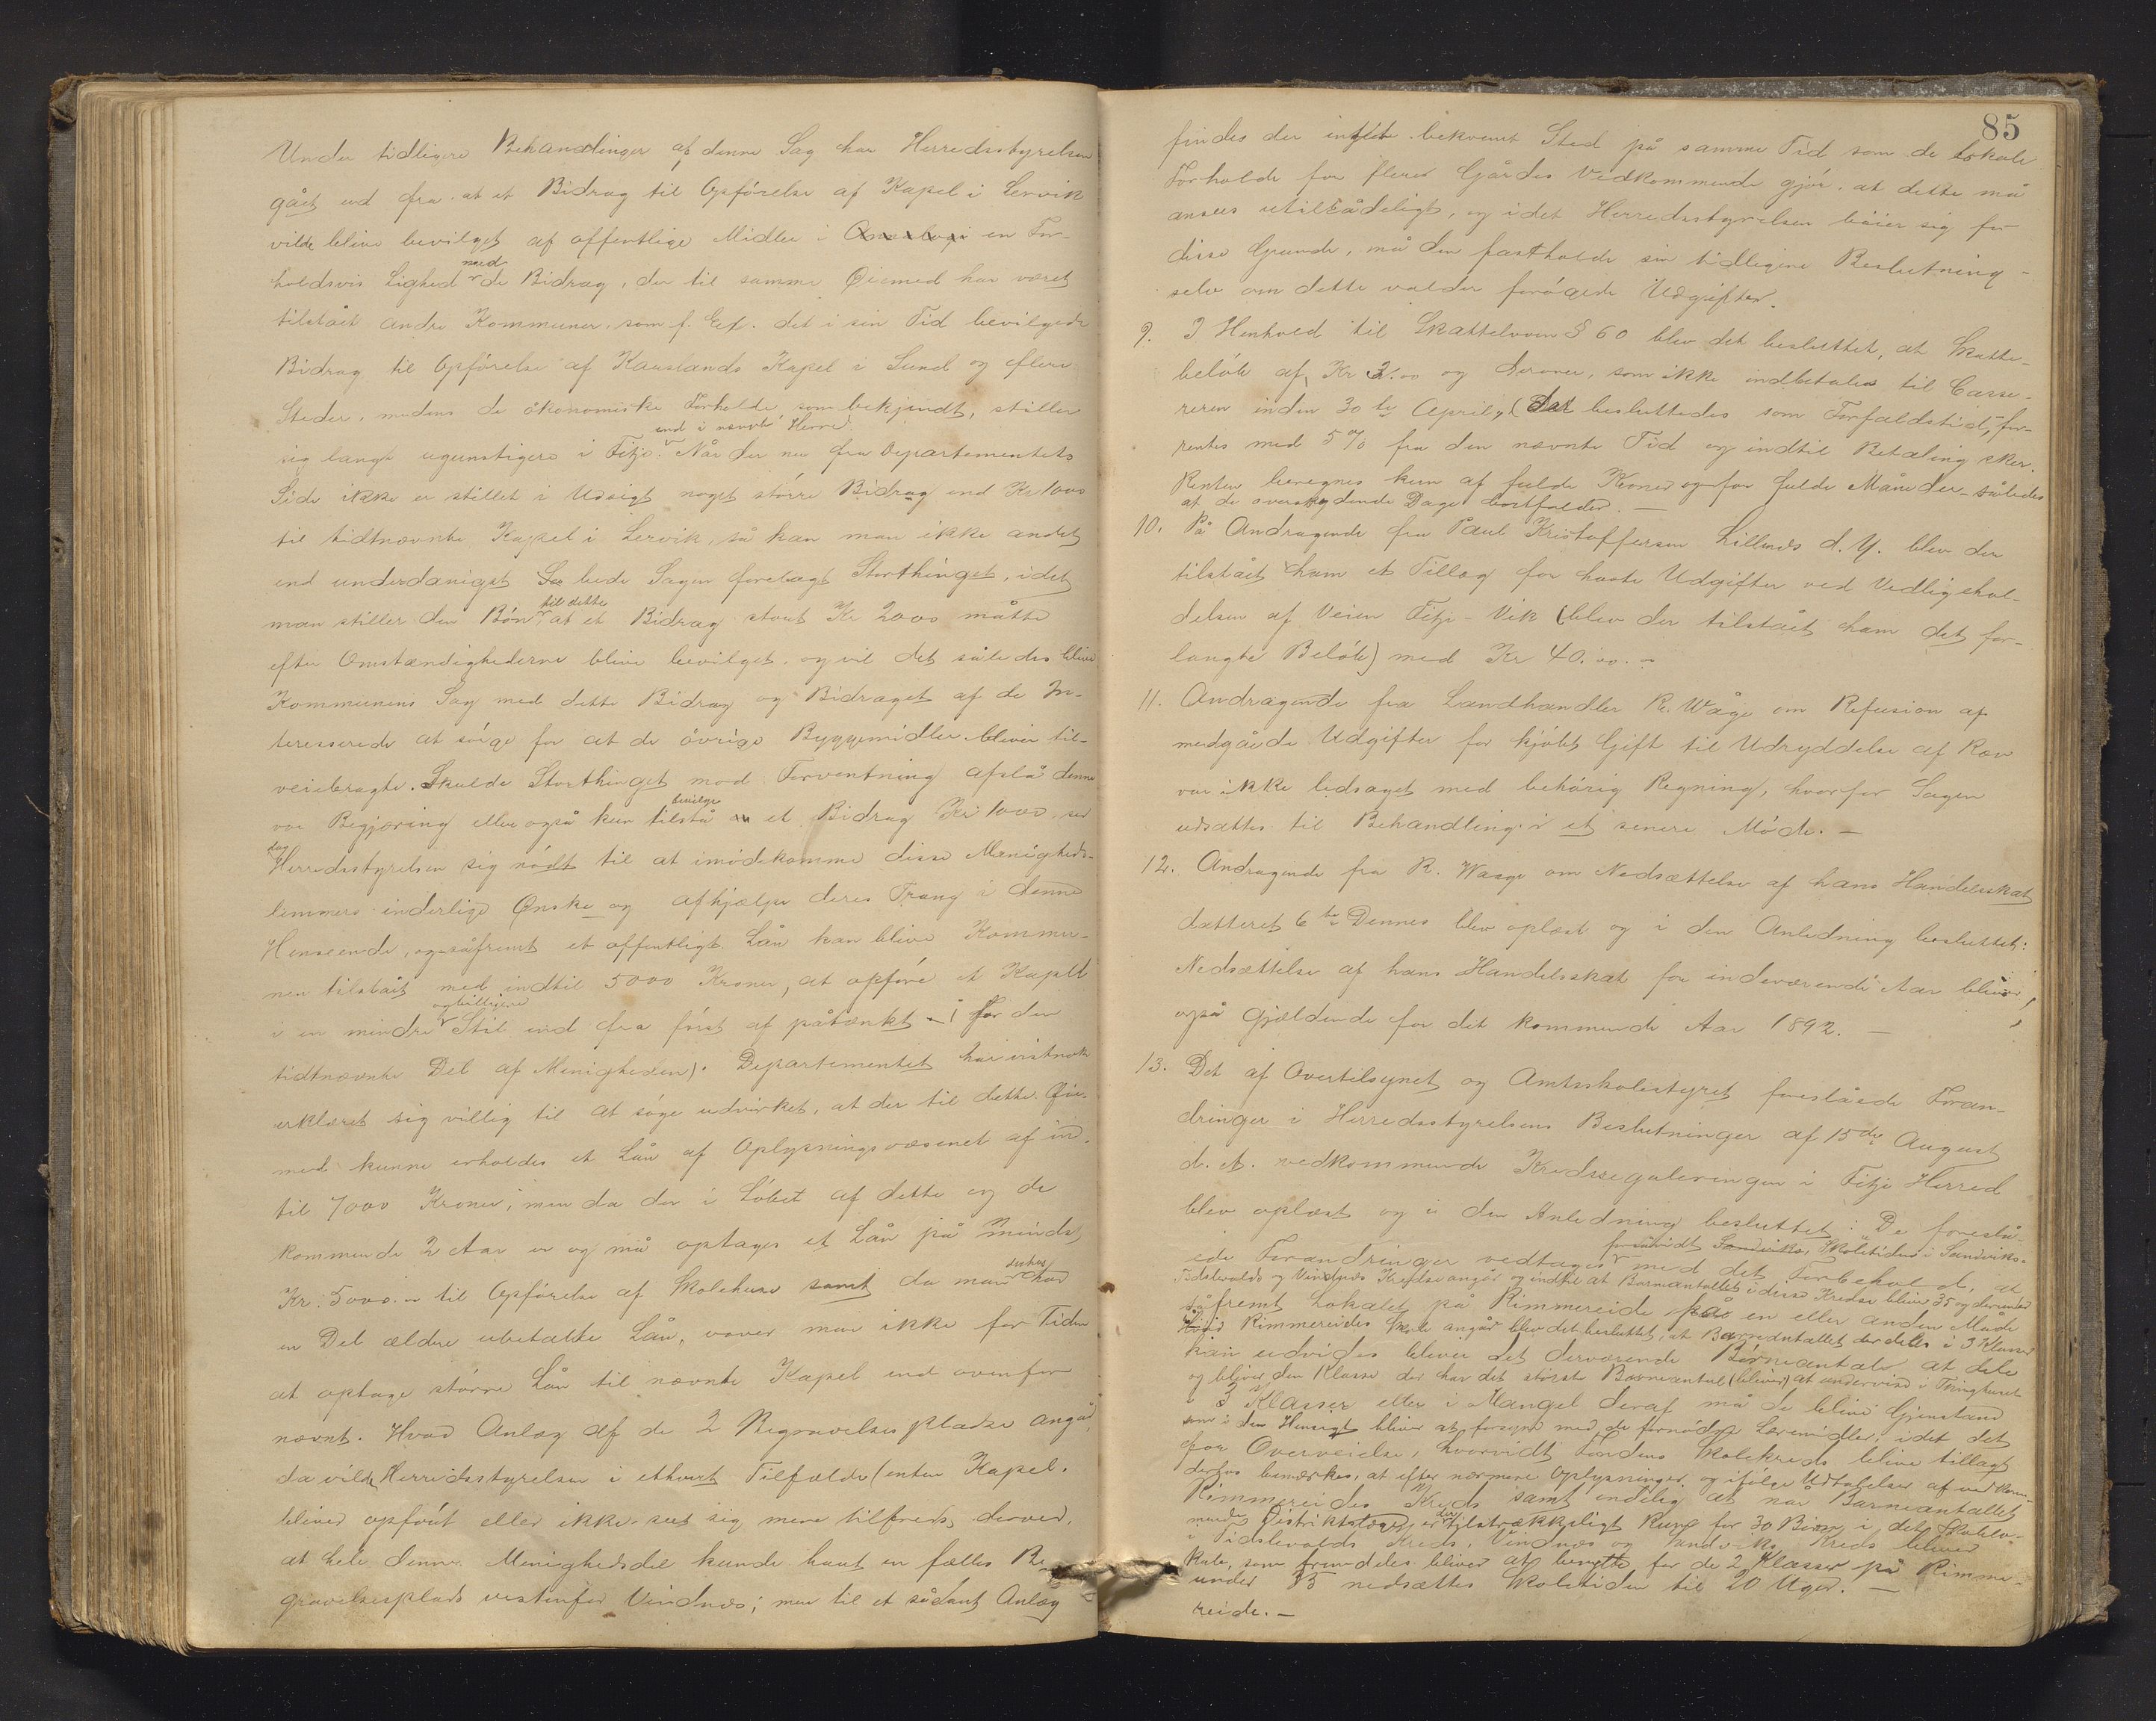 Under tidligere Behandlinger af denne Sag har Herredsstyrelsen
gået ud fra at et Bidrag til Opførelse af Kapel i Lervik
vilde blive bevilget af offentlige Midler i en For-
holdsvis Lighed med de Bidrag, der til samme Øiemed har været
tilstået andre Kommuner, som f. Ex. det i sin Tid bevilgede
Bidrag til Opførelse af Kauslands Kapel i Sund og flere
Steder, medens de økonomiske Forholde, som bekjendt, stiller
sig langt ugunstigere i Fitje end i nævnte Herred. Når der nu fra Departementets
Side ikke er stillet i Udsigt noget større Bidrag end Kr 1000
til tidtnævnte Kapel i Lervik, så kan man ikke andet
end underdanigst bede Sagen forelagt Storthinget, idet
man stiller den Bøn til dette at et Bidrag stort Kr 2000 måtte
efter Omstændighederne blive bevilget, og vil det således blive
Kommunens Sag med dette Bidrag og Bidraget af de In-
teresserede at sørge for at de øvrige Byggemidler bliver til-
veiebragte. Skulde Storthinget mod Forventning afslå denne
vor Begjæring eller også kun tilstå bevilge et Bidrag Kr 1000, ser
dog Herredsstyrelsen sig nødt til at imødekomme disse Menigheds-
lemmers inderlige Ønske og afhjælpe deres Trang i denne
Henseende, og såfremt et offentligt Lån kan blive Kommu-
nen tilstået med indtil 5000 Kroner, at opføre et Kapell
i en mindre og billigere Stil end fra først af påtænkt - i for den
tidtnævnte Del af Menigheden). Departementet har vistnok
erklæret sig villig til at søge udvirket, at der til dette Øie-
med kunne erholdes et Lån af Oplysningsvæsenet af ind-
til 7000 Kroner, men da der i Løbet af dette og de
kommende 2 Aar er og må optages et Lån på mindst
Kr. 5000.- til Opførelse af Skolehuse samt da man desuden har
en Del ældre ubetalte Lån, vover man ikke for Tiden
at optage større Lån til nævnte Kapel end ovenfor
nævnt. Hvad Anlæg af de 2 Begravelsespladse angår,
da vilde Herredsstyrelsen i ethvert Tilfælde (enten Kapel
bliver opført eller ikke) set sig mere tilfreds derved,
at hele denne Menighedsdel kunde havt en fælles Be-
gravelsesplads vestenfor Vindnes; men til et sådant Anlæg
85
findes der intet bekvemt Sted på samme Tid som de lokale
Forholde for flere Gårdes Vedkommende gjør, at dette må
ansees utilrådeligt, og idet Herredsstyrelsen bøier sig for
disse Grunde, må den fastholde sin tidligere Beslutning -
selv om dette volder forøgede Udgifter.
9. I Henhold til Skatteloven § 60 blev det besluttet, at Skatte-
beløb af Kr 2.00 og derover, som ikke indbetales til Casse-
reren inden 30te April, (der besluttedes som Forfaldstid), for-
rentes med 5 % fra den nævnte Tid og indtil Betaling sker.
Renter beregnes kun af fulde Kroner og for fulde Måneder - således
at de overskydende Dage bortfalder. -
10. På Andragende fra Paul Kristoffersen Lillenes d. Y. blev der
tilstået ham et Tillæg for havte Udgifter ved Vedligehol-
delsen af Veien Fitje - Vik (blev der tilstået ham det for-
langte Beløb) med Kr 40.00. -
11. Andragende fra Landhandler R. Wåge om Refusion af
medgåede Udgifter for kjøbt Gift til Udryddelse af Ræv
var ikke ledsaget med behørig Regning, hvorfor Sagen
udsættes til Behandling i et senere Møde. -
12. Andragende fra R. Waage om Nedsættelse af hans Handelsskat
datteret 6te Dennes blev oplæst og i den Anledning besluttet:
Nedsættelse af hans Handelsskat for indeværende Aar bliver
også gjældende for det kommende Aar 1892. -
13. Det af Overtilsynet og Amtsskolestyret foreslåede Foran-
dringer i Herredsstyrelsens Beslutninger af 15de August
d. A. vedkommende Kredsreguleringen i Fitje Herred
blev oplæst og i den Anledning besluttet: "De foreslå-
ede Forandringer vedtages med det Forbehold, at
forsåvidt Skoletiden i Sandviks-
Tidslevolds og Vindnæs Kredse angår og indtil at Barneantallet i disse Kredse bliver 35 og derunder
såfremt Lokalet på Rimmereide på en eller anden Måde
Hvad Rimmereides Skole angår blev det besluttet, at Barneantallet der deles i 3 Klasser
kan udvides bliver det derværende Børneantal at dele
og bliver den Klasse der har det største Barneantal (bliver) at undervise i Thinghuset
i 3 Klasser eller i Mangel deraf må de blive Gjenstand
som i den Hensigt bliver at forsyne med de fornødne Læremidler, idet det
for Overveielse, hvorvidt Skolekreds blive tillagt
derhos bemærkes, at efter nærmere Oplysninger og ifølge Udtalelser af vedkom-
Rimmereides Kreds samt endelig at når Barneantallet
mende Distriktslæge er der tilstrækkeligt Rum for 30 Børn i det Skolelo-
i Tidslevolds Kreds, Vindnæs og Sandviks Kreds bliver
kale, som fremdeles bliver at benytte for de 2 Klasser på Rimme-
under 35 nedsættes Skoletiden til 20 Uger. -
reide. -